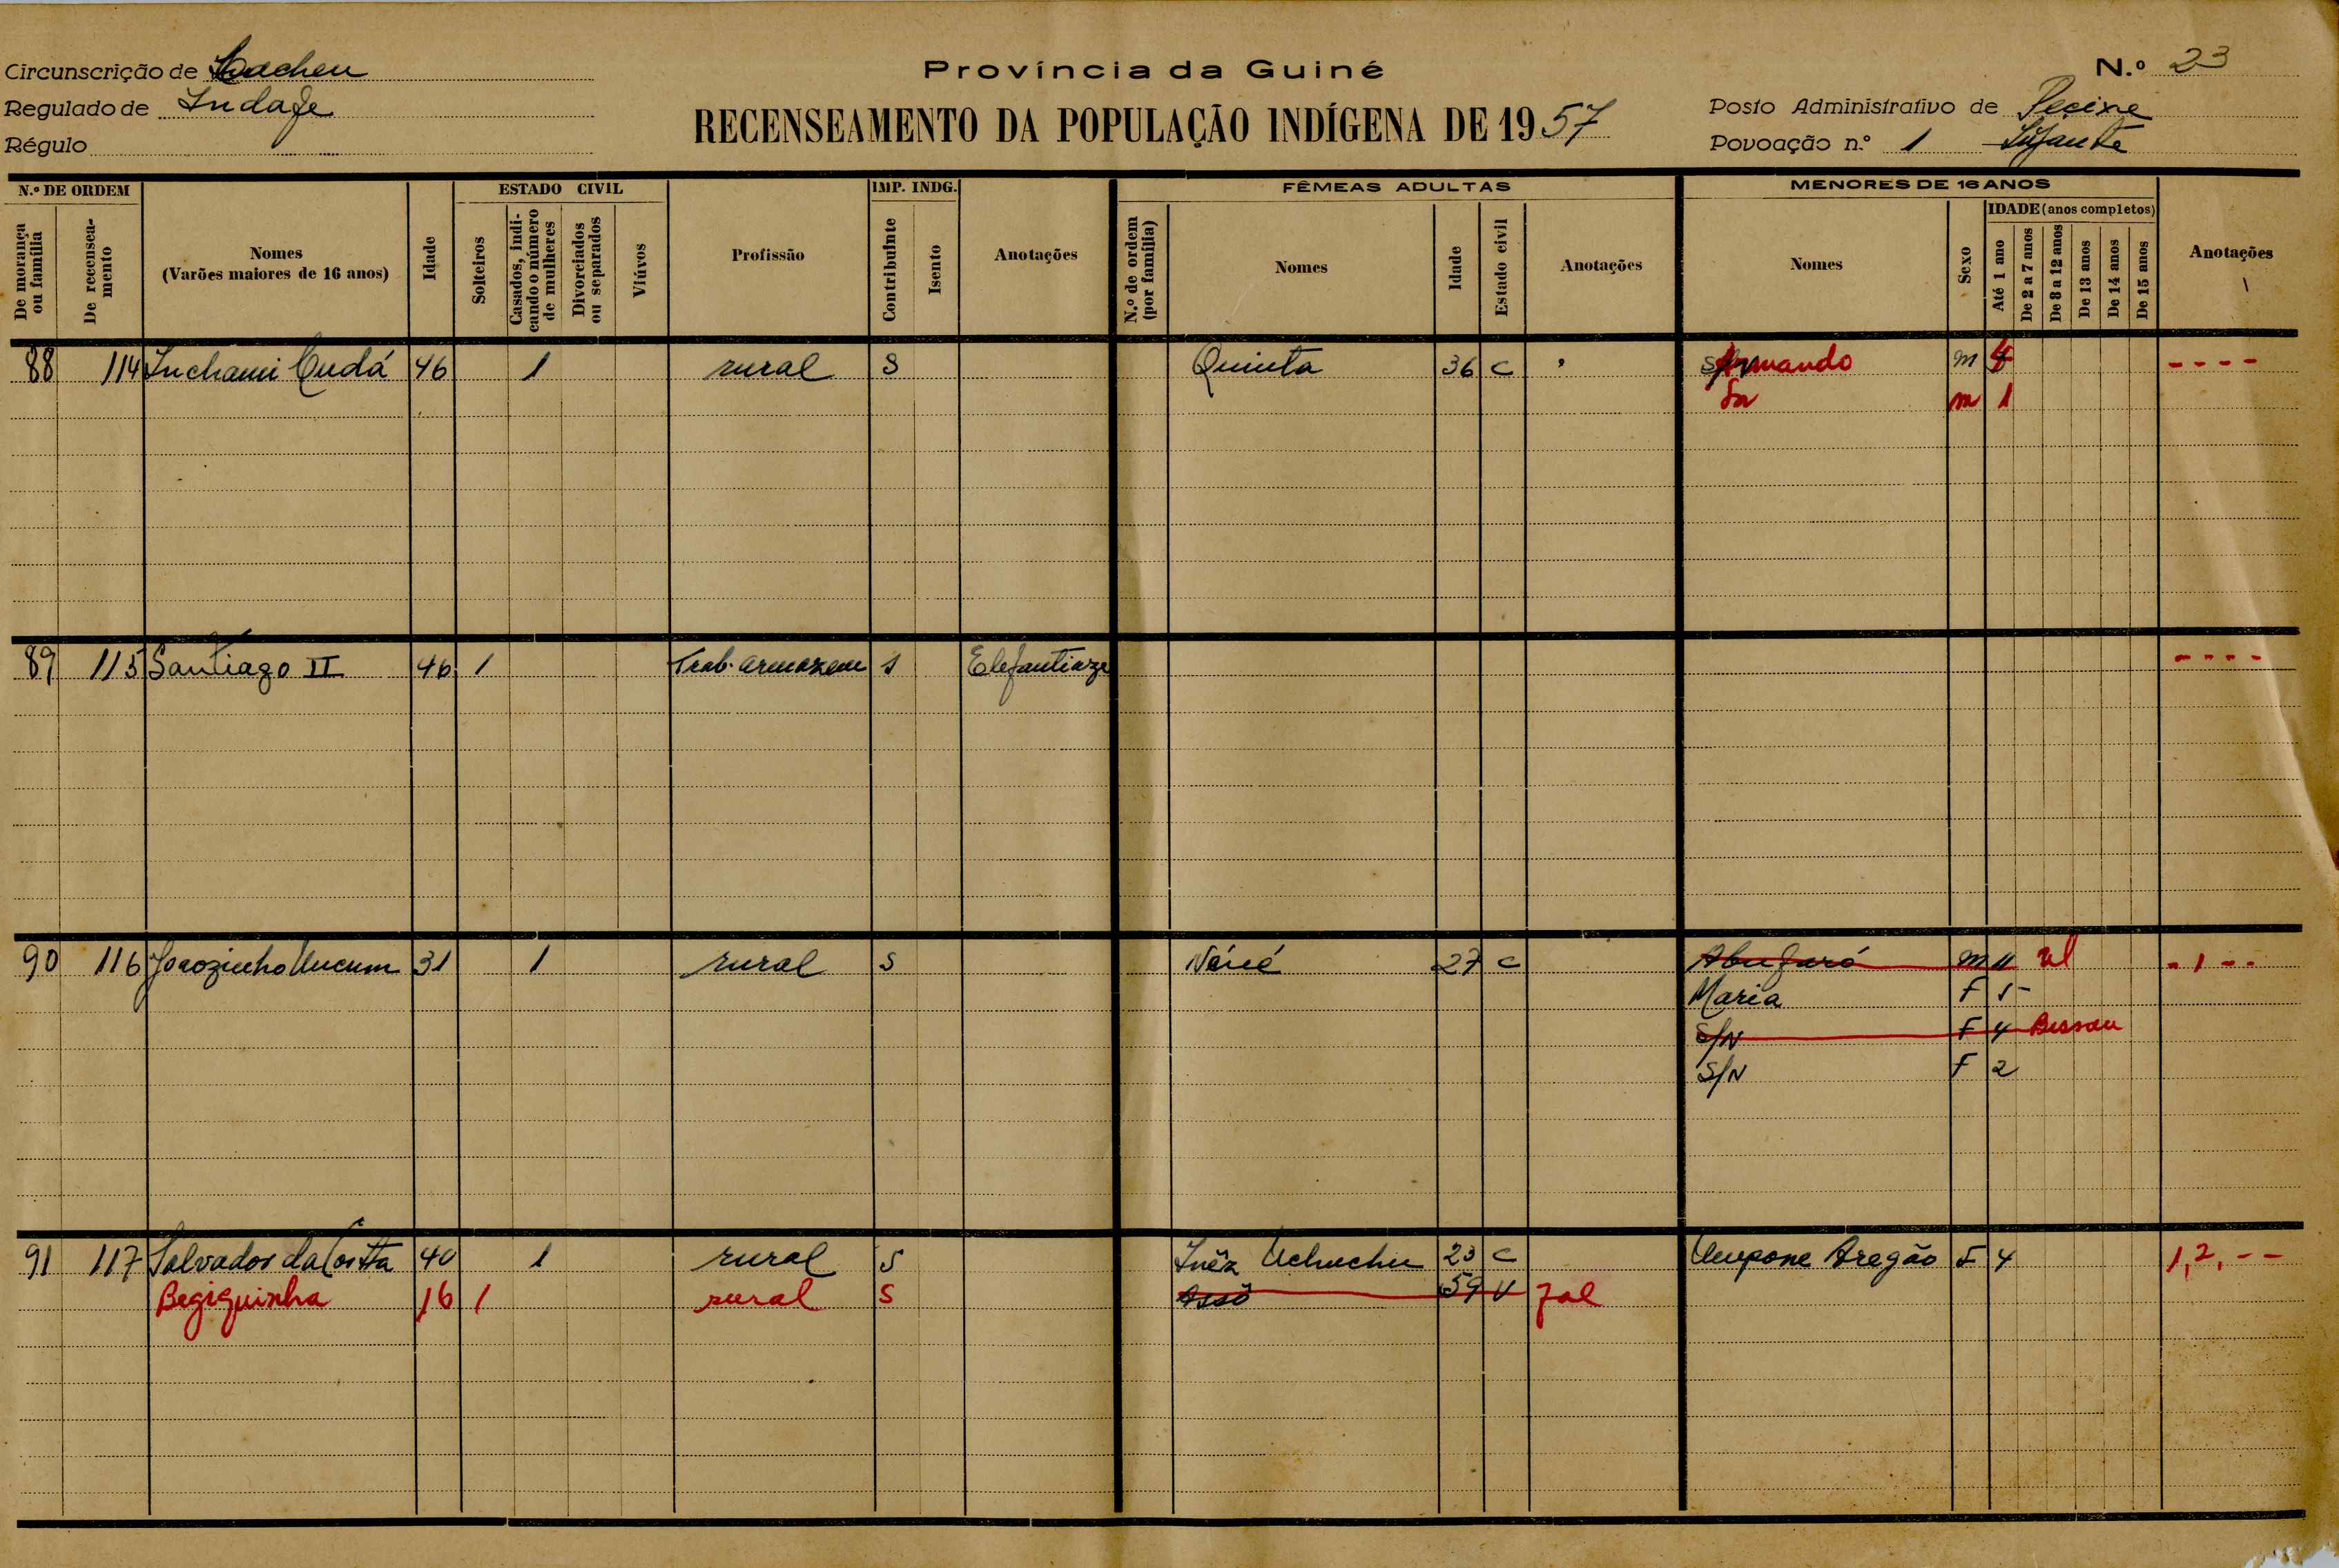 Circunscrição de Cacheu
Província da Guiné
N.º 23
Regulado de Indafe
RECENSEAMENTO DA POPULAÇÃO INDÍGENA DE 1957
Posto Administrativo de Pecixe
Régulo
Povoação n.º 1
N.º DE ORDEM
De morança ou família
De recenseamento
Nomes
(Varões maiores de 16 anos)
Idade
ESTADO CIVIL
Solteiros
Casados, indicando o número de mulheres
Divorciados ou separados
Viúvos
Profissão
IMP. INDG.
Contribuinte
Isento
Anotações
FÊMEAS ADULTAS
N.º de ordem (por família)
Nomes
Idade
Estado civil
Anotações
MENORES DE 16 ANOS
Nomes
Sexo
IDADE (anos completos)
Até 1 ano
De 2 a 7 anos
De 8 a 12 anos
De 13 anos
De 14 anos
De 15 anos
Anotações
88 114 Inchami Cudá 46 1 rural S Quinta 36 C Armando M 4 - - - -
Sn m 1
89 115 Santiago II 46 1 Trab. armazem S Elefantiaze - - - -
90 116 Joaozinho Uncum 31 1 rural S 27 C Abufaró M 11 - 1 - -
Maria F 5
S/N F 4 Bissau
S/N F 2
91 117 Salvador da Costa 40 1 rural S Inêz Uchuchu 23 C Umpone Aregão F 4 1, 2, - -
Begiguinha 16 1 rural S Assô 59 V Fal